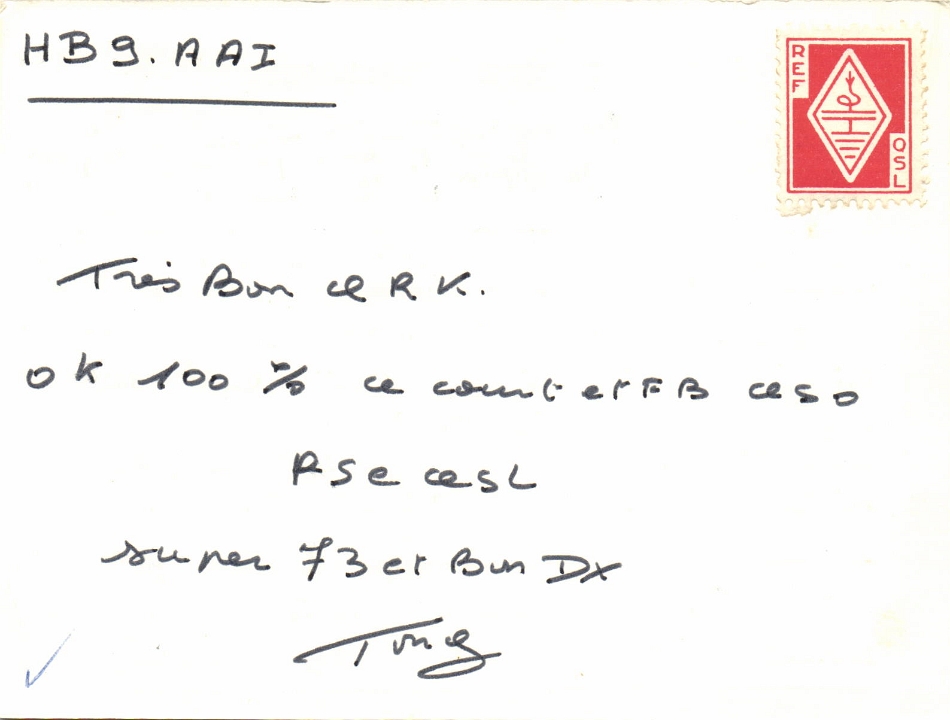 HB9.AAI
REF
QSL
Très Bon QRK.
OK 100 % ce court et FB QSO
PSE QSL
super 73 et Bon DX
Tony